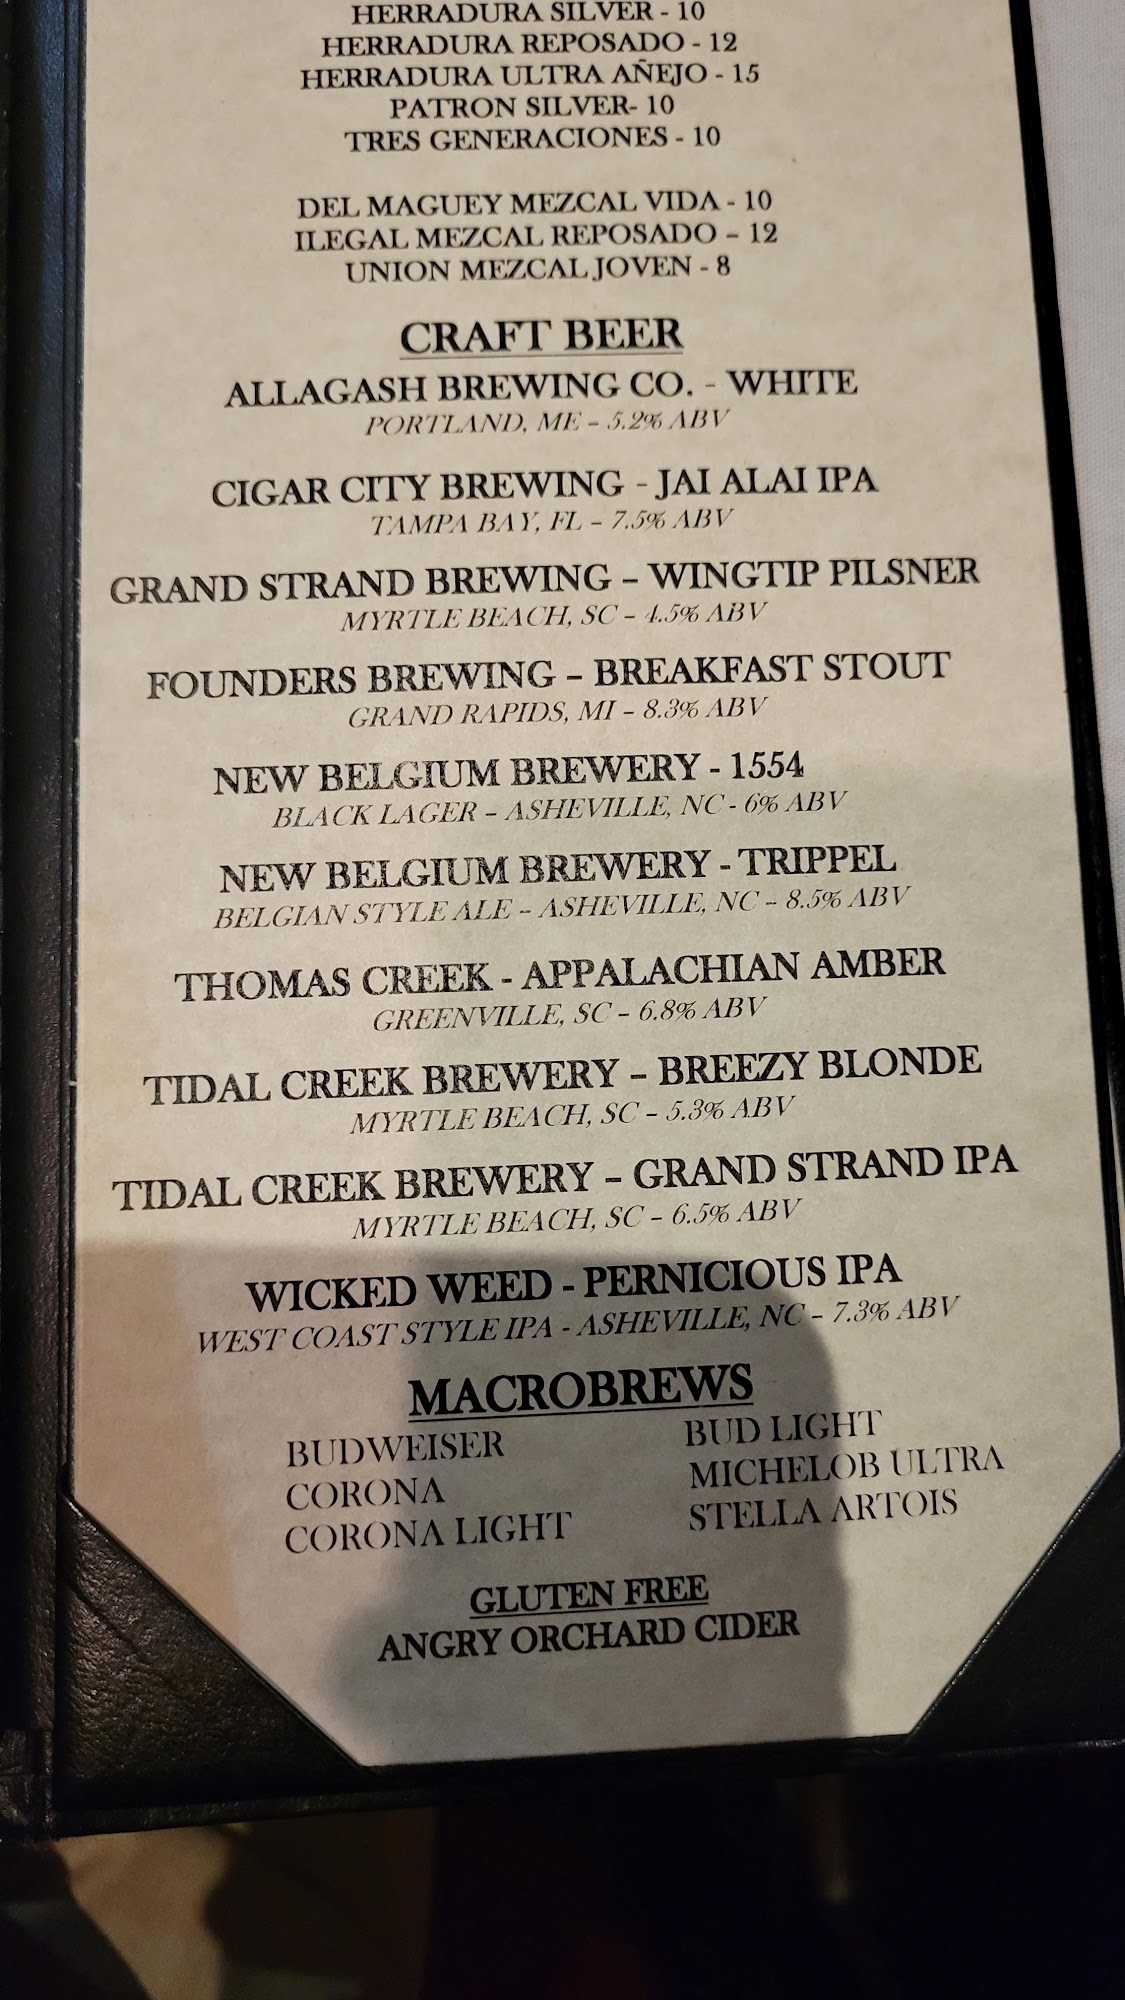 HERRADURA SILVER - 10
HERRADURA REPOSADO - 12
HERRADURA ULTRA AÑEJO - 15
PATRON SILVER- 10
TRES GENERACIONES - 10
DEL MAGUEY MEZCAL VIDA - 10
ILEGAL MEZCAL REPOSADO – 12
UNION MEZCAL JOVEN - 8
CRAFT BEER
ALLAGASH BREWING CO. - WHITE
PORTLAND, ME – 5.2% ABV
CIGAR CITY BREWING - JAI ALAI IPA
TAMPA BAY, FL – 7.5% ABV
GRAND STRAND BREWING – WINGTIP PILSNER
MYRTLE BEACH, SC – 4.5% ABV
FOUNDERS BREWING – BREAKFAST STOUT
GRAND RAPIDS, MI – 8.3% ABV
NEW BELGIUM BREWERY - 1554
BLACK LAGER – ASHEVILLE, NC - 6% ABV
NEW BELGIUM BREWERY - TRIPPEL
BELGIAN STYLE ALE – ASHEVILLE, NC – 8.5% ABV
THOMAS CREEK - APPALACHIAN AMBER
GREENVILLE, SC – 6.8% ABV
TIDAL CREEK BREWERY – BREEZY BLONDE
MYRTLE BEACH, SC – 5.3% ABV
TIDAL CREEK BREWERY – GRAND STRAND IPA
MYRTLE BEACH, SC – 6.5% ABV
WICKED WEED - PERNICIOUS IPA
WEST COAST STYLE IPA - ASHEVILLE, NC – 7.3% ABV
MACROBREWS
BUDWEISER BUD LIGHT
CORONA MICHELOB ULTRA
CORONA LIGHT STELLA ARTOIS
GLUTEN FREE
ANGRY ORCHARD CIDER